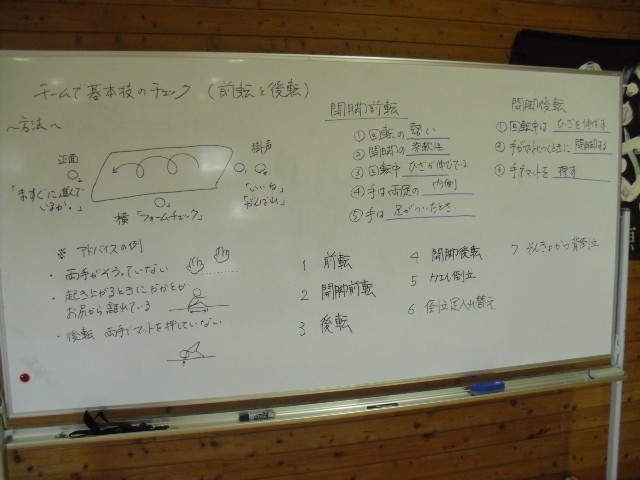 チームで基本技のチェック (前転と後転)
~方法~
正面
「まっすぐに進んでいるか。」
掛声
「いいね」
「がんばれ」
横「フォームチェック」
※ アドバイスの例
・両手がそろっていない
・起き上がるときにかかとが
お尻から離れている
・後転 両手でマットを押していない
開脚前転
① 回転の 勢い
② 開脚の 柔軟性
③ 回転中 ひざが伸びている
④ 手は両足の 内側
⑤ 手は 足がついたとき
開脚後転
① 回転中は ひざを伸ばす
② 手がマットにつくときに 開脚する
③ 手でマットを 押す
1 前転
2 開脚前転
3 後転
4 開脚後転
5 カエル倒立
6 倒立足入れ替え
7 そんきょから背倒立